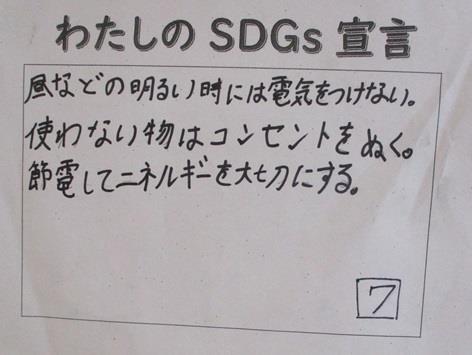 わたしの SDGs 宣言
昼などの明るい時には電気をつけない。
使わない物はコンセントをぬく。
節電してエネルギーを大切にする。
7